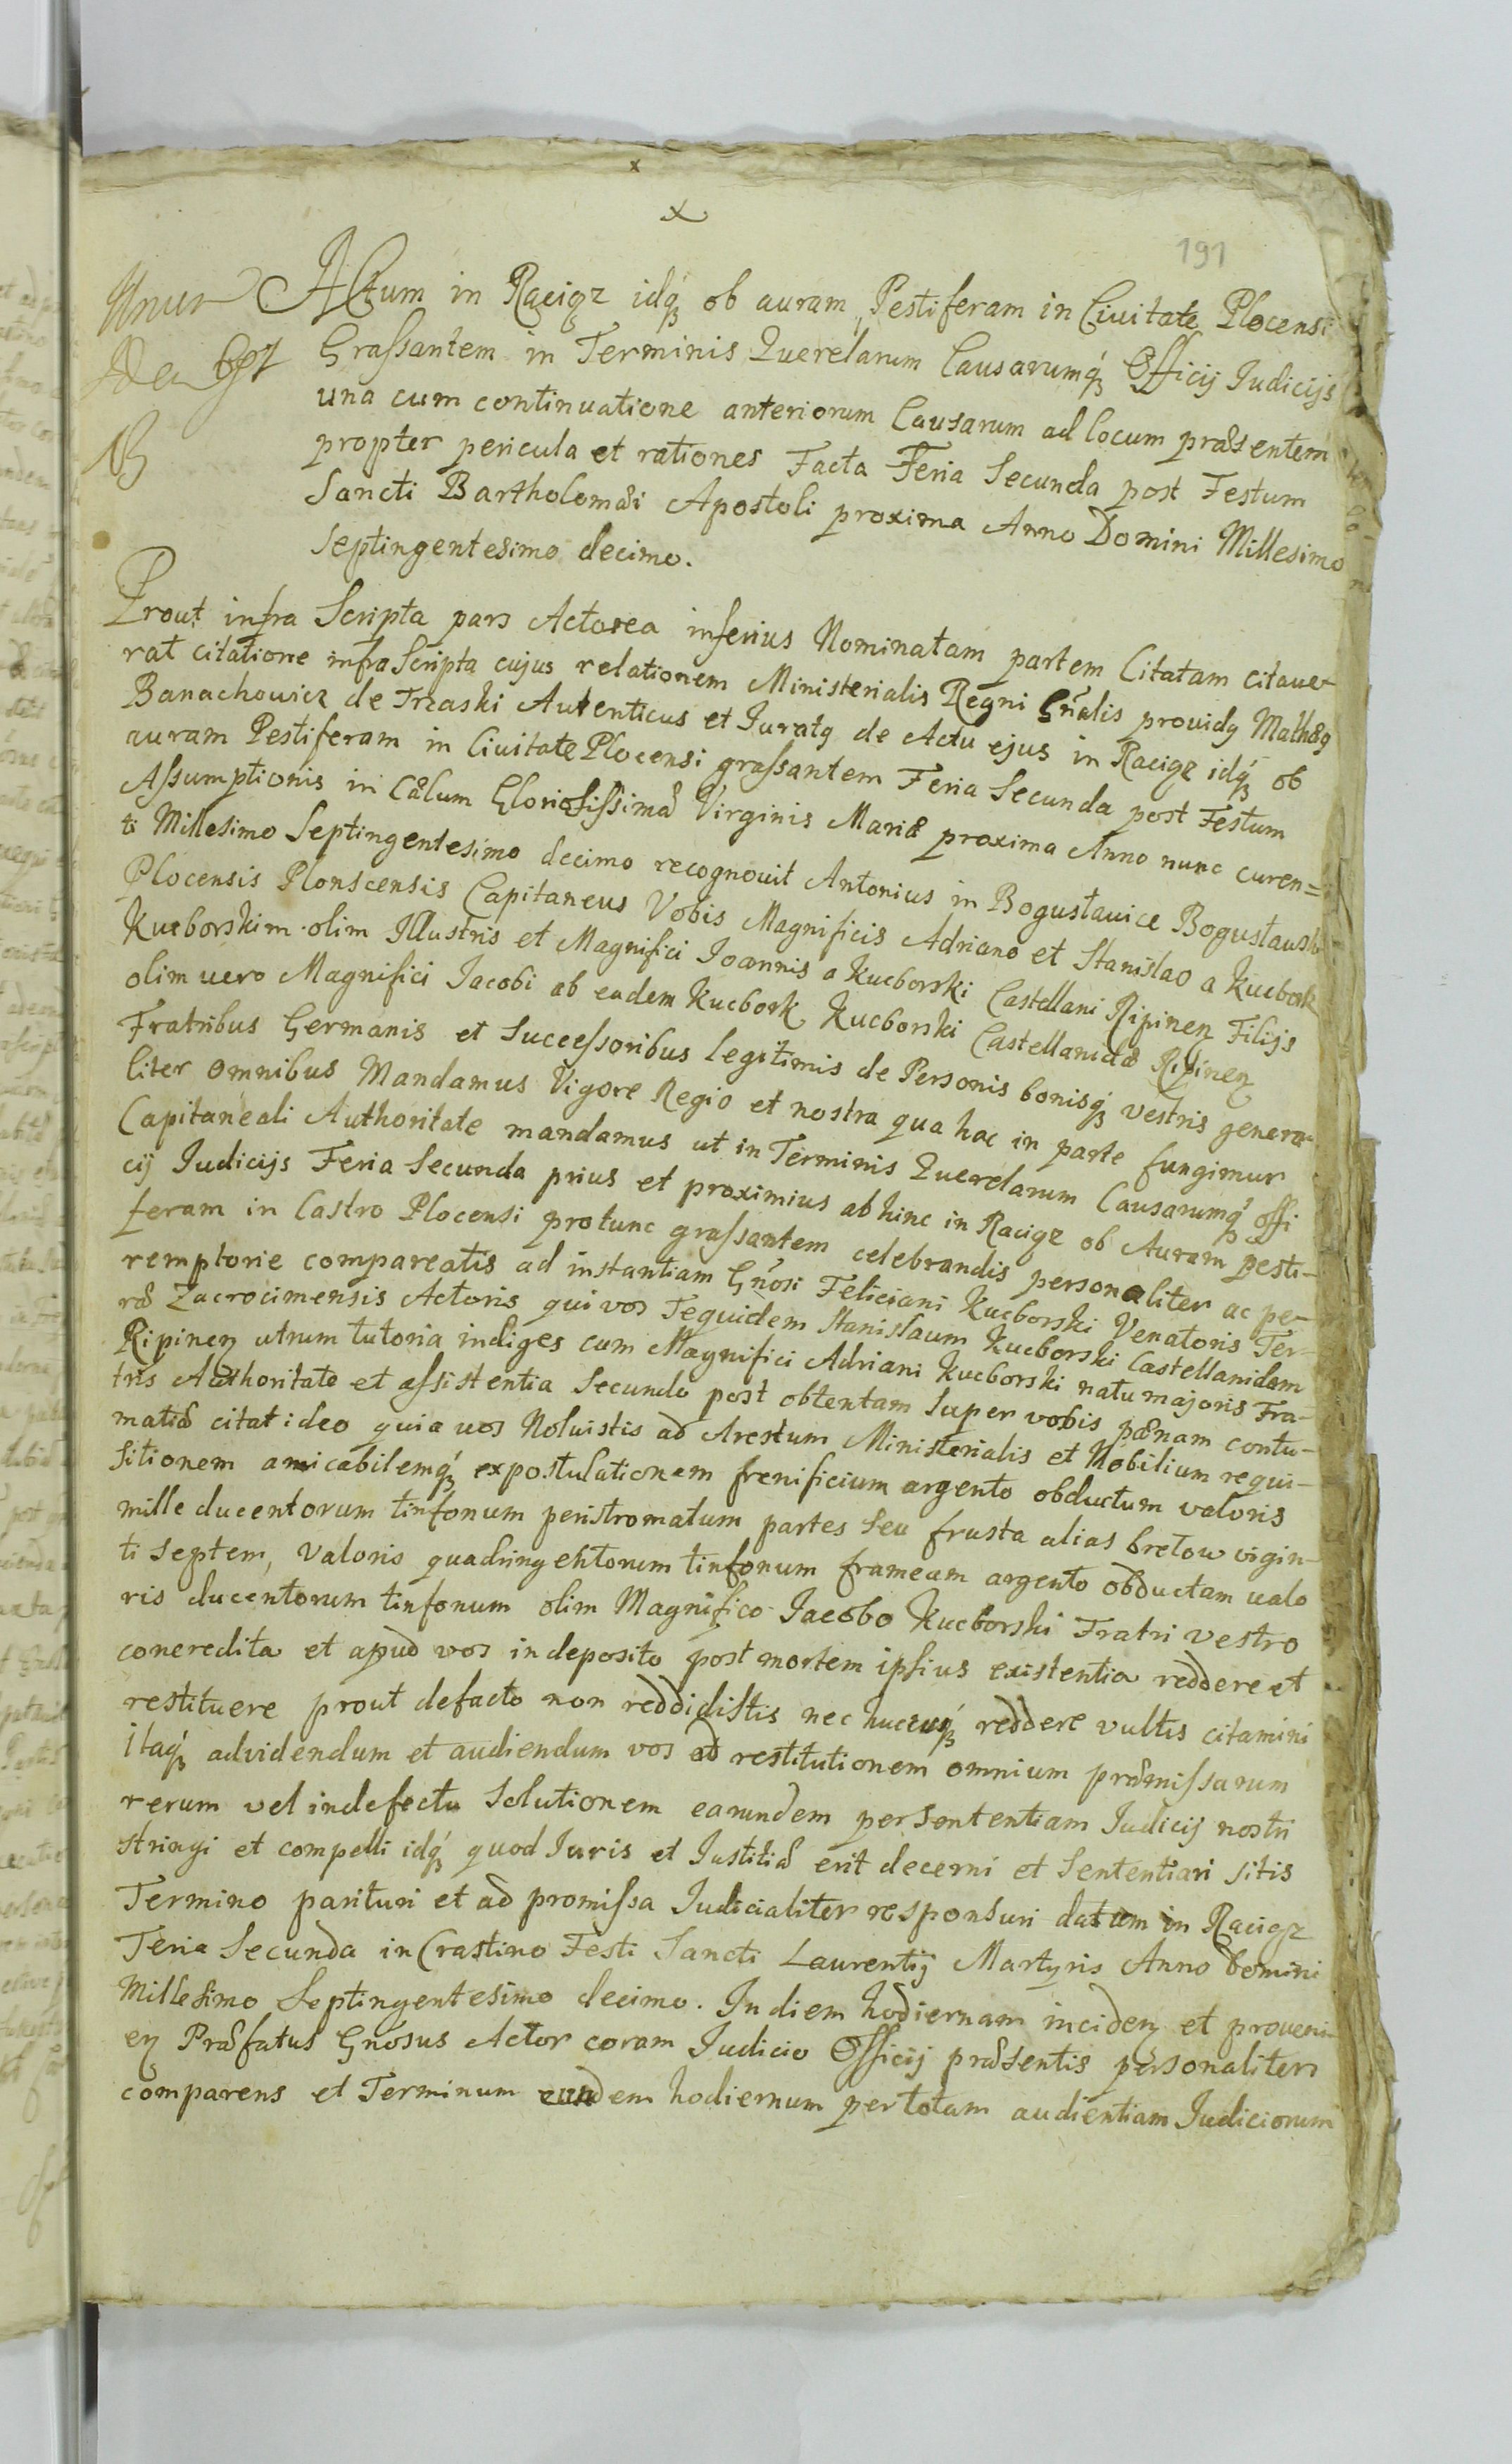 x
x
191
Actum in Raciąz idq́ꝫ ob auram Pestiferam in Ciuitate Plocensi
Graſsantem in Terminis Querelarum Causarumq́ꝫ Officij Iudicijs
una cum continuatione anteriorum Causarum ad locum præsentem
propter pericula et rationes Facta Feria Secunda post Festum
Sancti Bartholomæi Apostoli proxima Anno Domini Millesimo
Septingentesimo decimo.
Prout infra Scripta pars Actorea inferius Nominatam partem Citatam citaue-
rat citatione infra Scripta cujus relationem Ministerialis Regni Gñalis prouidꝯ Mathæꝯ
Banachowicz de Trzaski Autenticus et Iuratꝯ de Actu ejus in Raciąz idq́ꝫ ob
auram Pestiferam in Ciuitate Plocensi graſsantem Feria Secunda post Festum
Aſsumptionis in Cælum Gloriosiſsimæ Virginis Mariæ proxima Anno nunc curen=
ti Millesimo Septingentesimo decimo recognouit Antonius in Bogusławice Bogusławski
Plocensis Plonscensis Capitaneus Vobis Magnificis Adriano et Stanislao a Kucbork
Kucborskim olim Illustris et Magnifici Ioannis a Kucborski Castellani Ripinen Filijs
olim uero Magnifici Iacobi ab eadem Kucbork Kucborski Castellanidæ Ripinen
Fratribus Germanis et Succeſsoribus legitimis de Personis bonisq́ꝫ vestris genera-
liter omnibus Mandamus Vigore Regio et nostra qua hac in parte fungimur
Capitaneali Authoritate mandamus ut in Terminis Querelarum Causarumq́ꝫ offi
cij Iudicijs Feria Secunda prius et proximius ab hinc in Raciąz ob Auram pesti-
feram in Castro Plocensi protunc graſsantem celebrandis personaliter ac pe-
remptorie compareatis ad instantiam Gñosi Feliciani Kucborski Venatoris Ter-
ræ Zacrocimensis Actoris qui vos Tequidem Stanislaum Kucborski Castellanidam
Ripinen utrum tutoria indiges cum Magnifici Adriani Kucborski natu majoris Fra-
tris Authoritate et aſsistentia Secundo post obtentam super vobis pænam contu-
matiæ citat ideo quia uos Noluistis ad Arestum Ministerialis et Nobilium requi-
sitionem amicabilemq́ꝫ expostulationem frenificium argento obductum valoris
mille ducentorum tinfonum peristromatum partes seu frusta alias bretow vigin-
ti septem, Valoris quadringentorum tinfonum frameam argento obductam ualo
ris ducentorum tinfonum olim Magnifico Iacobo Kucborski Fratri vestro
concredita et apud vos in deposito post mortem ipsius existentia reddere et
restituere prout defacto non reddidistis nec hucusq́ꝫ reddere vultis citamini
itaq́ꝫ advidendum et audiendum vos ad restitutionem omnium præmiſsarum
rerum vel indefectu Solutionem earundem per Sententiam Iudicij nostri
stringi et compelli idq́ꝫ quod Iuris et Iustitiæ erit decerni et Sententiari sitis
Termino parituri et ad promiſsa Iudicialiter responsuri datum in Raciąz
Feria Secunda in Crastino Festi Sancti Laurentij Martyris Anno Domini
Millesimo Septingentesimo decimo. In diem hodiernam inciden et proueni-
en Præfatus Gnósus Actor coram Iudicio Officij præsentis personaliter
comparens et Terminum eundem hodiernum per totam audientiam Iudiciorum